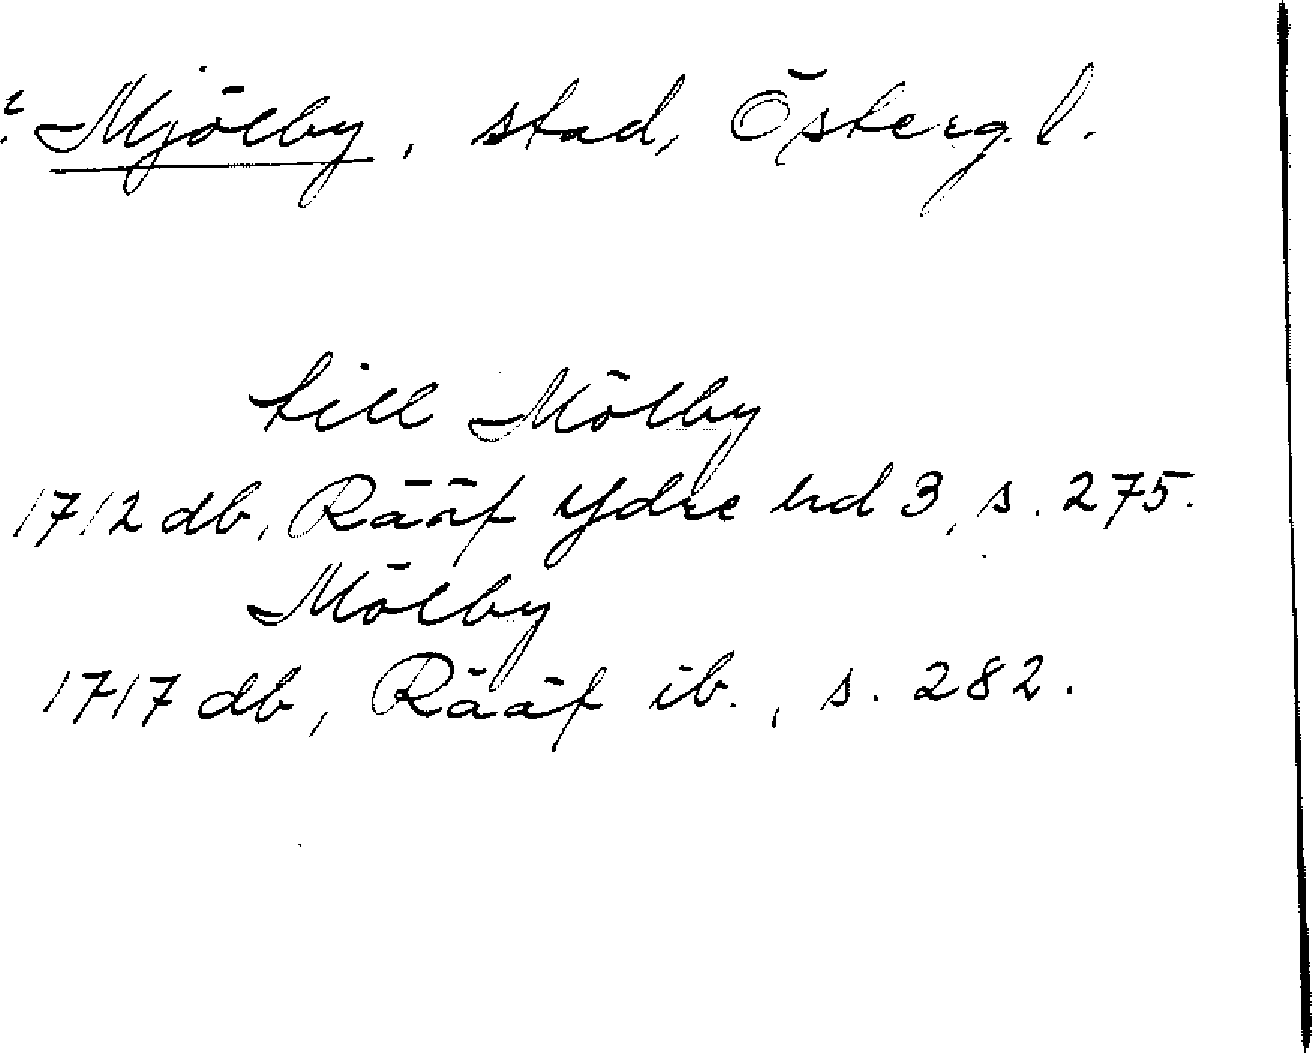 : Mjölby, stad, Österg.l.
till Mölby
1712 db, Rääf Ydre hd 3, s. 275.
Mölby
1717 db, Rääf ib., s. 282.